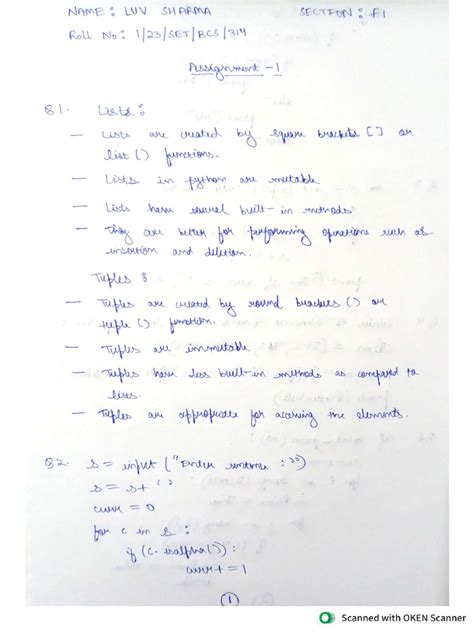 NAME : LUV SHARMA SECTION : F1
Roll No : 1/23/SET/BCS/314
Assignment - 1
Q1. Lists :
— Lists are created by square brackets [] or
list () functions.
— Lists in python are mutable
— Lists have several built-in methods
— They are better for performing operations such as
insertion and deletion.
Tuples :
— Tuples are created by round brackets () or
tuple () function.
— Tuples are immutable.
— Tuples have less built-in methods as compared to
lists.
— Tuples are appropriate for accessing the elements.
Q2. s = input ("Enter :")
s = s + ' '
curr = 0
for c in s :
if (c. isalpha()) :
curr += 1
(1)
Scanned with OKEN Scanner